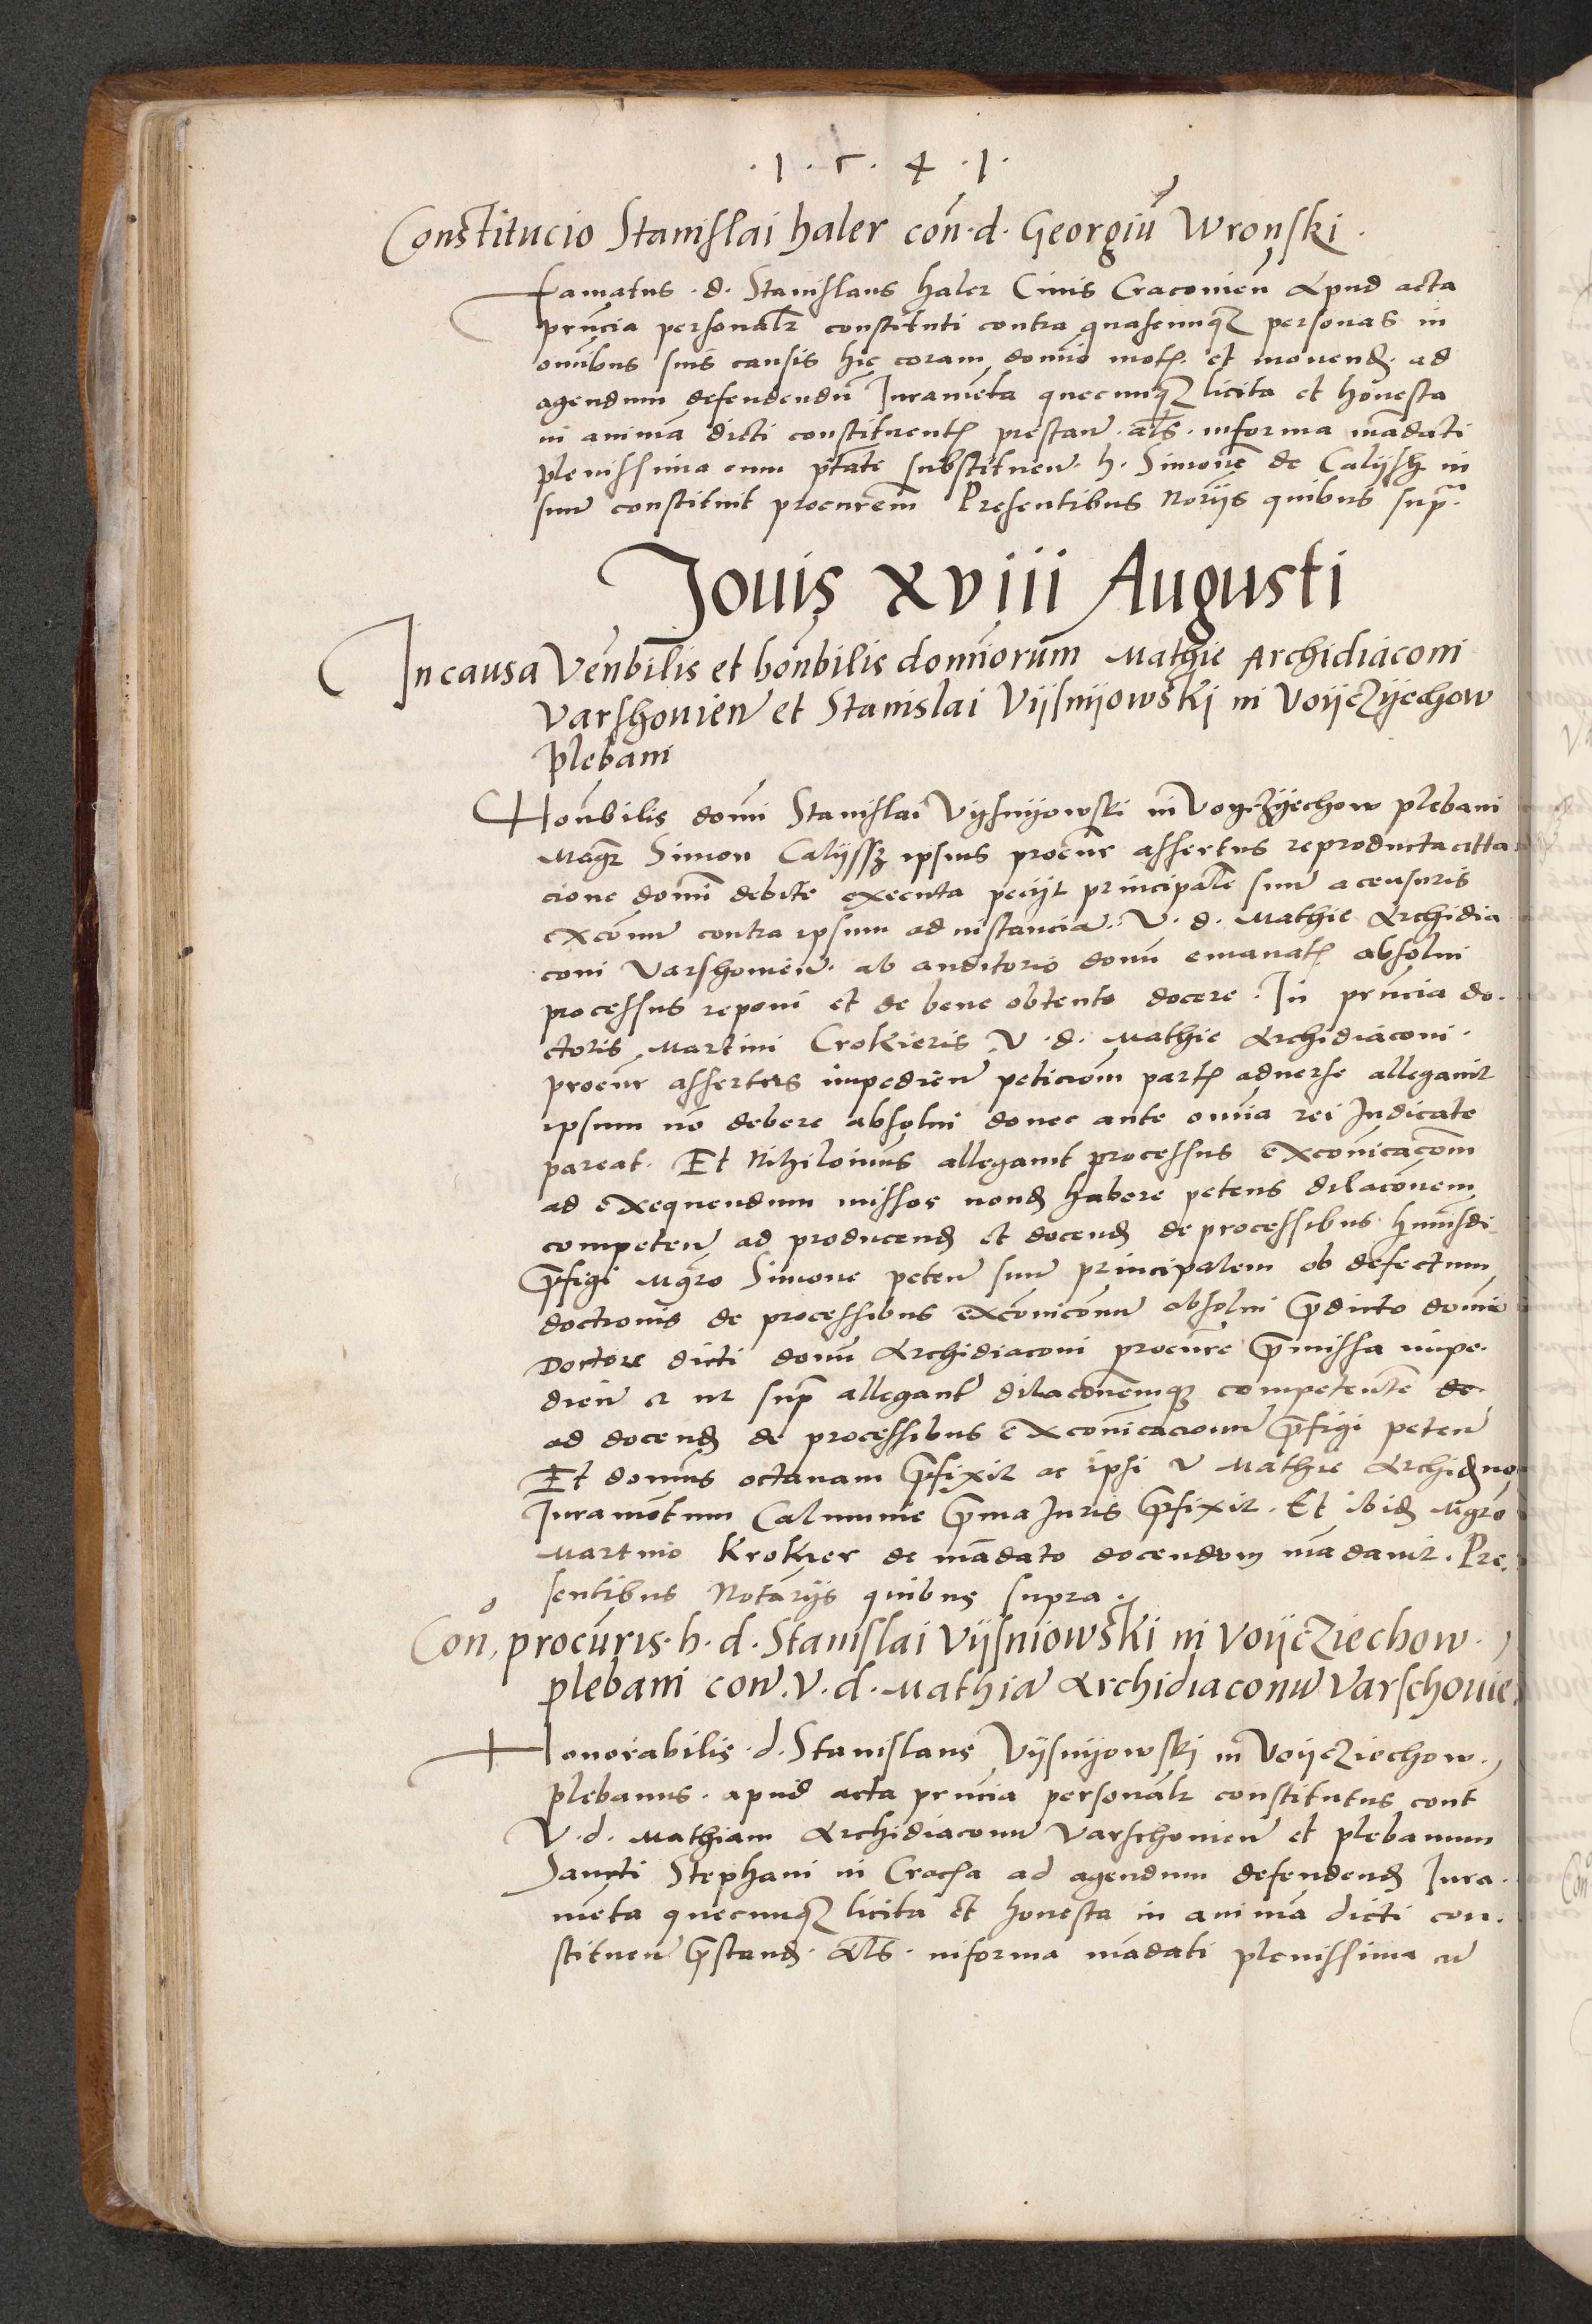 · 1 · 5 · 4 · 1 ·
Constitucio Stanislai haler con̄ · d · Georgiū Wronski ·
Famatus · d · Stanislaus haler Ciuis Cracouien̄ Apud acta
pn̄cia personalr constituti contra quascunqꝫ personas in
om̄ibus suis causis hic coram dom̄io mot̄ et mouend̄ ad
agendum defendendū Iuramēta quecunqꝫ licita et honesta
in animā dicti constituentꝭ prestan̄ · als̄ · in forma mādati
plenissima cum ptāte substituen̄ · h · Simonē de Calijsh in
suū constituit procurem̄ Presentibus Norijs quibus sup̄ª
Jouis xviii Augusti
In causa Ven̄bilis et hon̄bilis domīorum Mathie Archidiaconi
Varshouien̄ et Stanislai Vijsnijowski in Voijczijechow
plebani
Hon̄bilis domī Stanislai Vijsnijowski in Voijczijechow plebani
Magr̄ Simon Calijssz ipsius procur̄ assertus reproducta citta
cione domī debite executa pecijt principale suū a censuris
excōnū contra ipsum ad instanciā · V · d · Mathie Archidia
coni Varshouien̄ · ab auditorio domī emanatꝭ absolui
processus reponi et de bene obtento docere · In pn̄cia do
ctoris Martini Crokieris V · d · Mathie Archidiaconi ·
procur̄ assertus impedien̄ peticiom̄ partꝭ aduerse allegauit
ipsum nō debere absolui donec ante om̄ia rei Iudicate
pareat · Et Nihilominus allegauit processus excōicacōm
ad exequendum missos nond̄ habere petens dilacōnem
competen̄ ad producend̄ et docend̄ de processibus hmōi
p̄figi Mgr̄o Simone peten̄ suū principalem ob defectum
doctionis de processibus excōicōnū absolui p̄dicto domī
Doctore dicti domī Archidiaconi procur̄e p̄missa impe
dien̄ et ut sup̄ allegant̄ dilaconemqꝫ competentē de
ad docend̄ de processibus excōicacionū p̄figi peten̄
Et domīus octauam p̄fixit ac ipsi V Mathie Archid̄no
Iuramētum Calumnie p̄ma Iuris p̄fixit · Et ibid̄ Mgr̄o
Martino Krokier de mādato docendum mādauit · Pre
sentibus Notarijs quibus supra ·
Con̄ procuris · h · d · Stanislai Vijsniowski in Voijcziechow ·
plebani con̄ · V · d · Mathiā Archidiaconū Varschouie
Honorabilis · d · Stanislaus Vijsnijowski in Voijcziechow ·
plebanus · apud acta pn̄cia personalr̄ constitutus cont̄
V · d · Mathiam Archidiaconū Varschouien̄ et plebanum
Sancti Stephani in Crac̄a ad agendum defendend̄ Iura
mēta quecunqꝫ licita et honesta in animā dicti con
stituen̄ p̄stand̄ · als̄ · in forma mādati plenissima cū